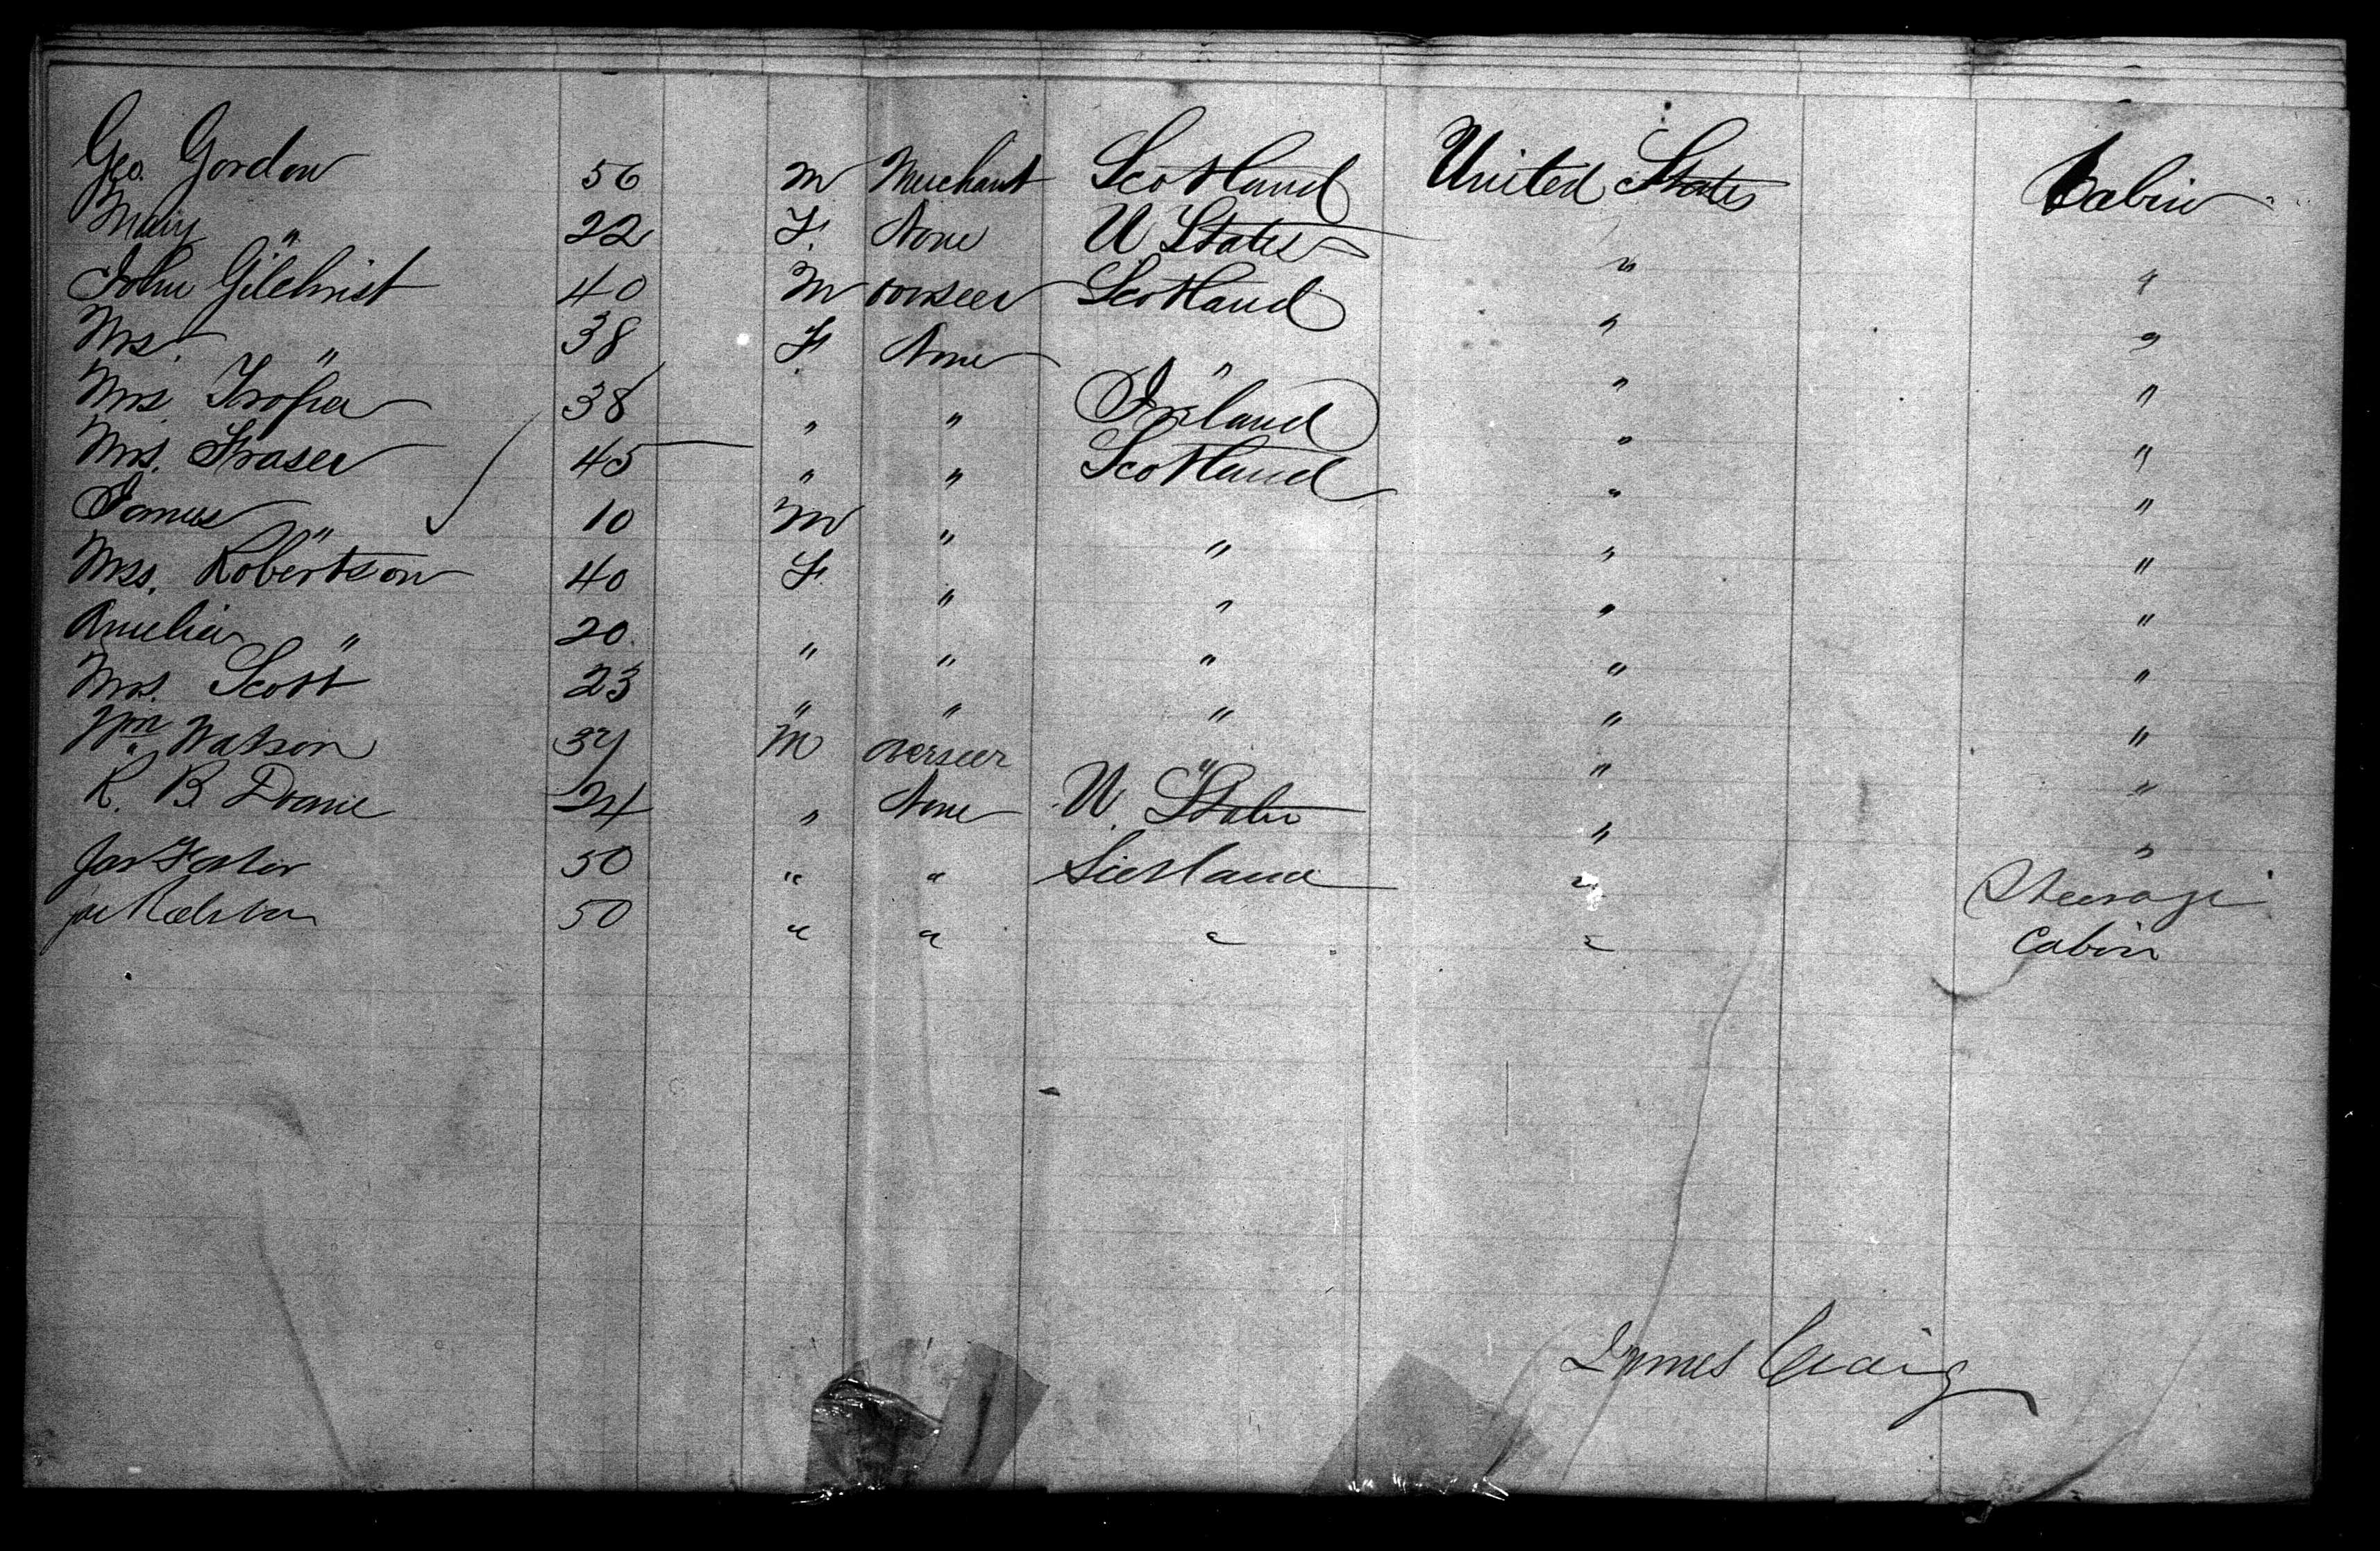 Geo. Gordon 56 M Merchant Scotland United States Cabin
Mary " 22 F. None U States " "
John Gilchrist 40 M overseer Scotland " "
Mrs. " 38 F None " " "
Mrs 38 " " Ireland " "
Mrs. Fraser 45 " " Scotland " "
James " 10 M " " " "
Mrs. Robertson 40 F " " " "
Amelia " 20 " " " " "
Mrs. Scott 23 " " " " "
Wm Watson 37 M overseer " " "
R. B 24 " None U. States " "
Jas 50 " " Scotland " Steerage
50 " " " " Cabin
James Craig